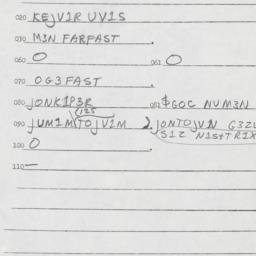 020 KEJV1R UV1S
030 M3N FARFAST.
060 O 061 O
070 OG3FAST.
080 JONK1P3R 081 $GOC NUM3N
125
090 JUM1M TOJV1M 2. JONTOJVN
S12 N1StTR1X
100 O.
110 —